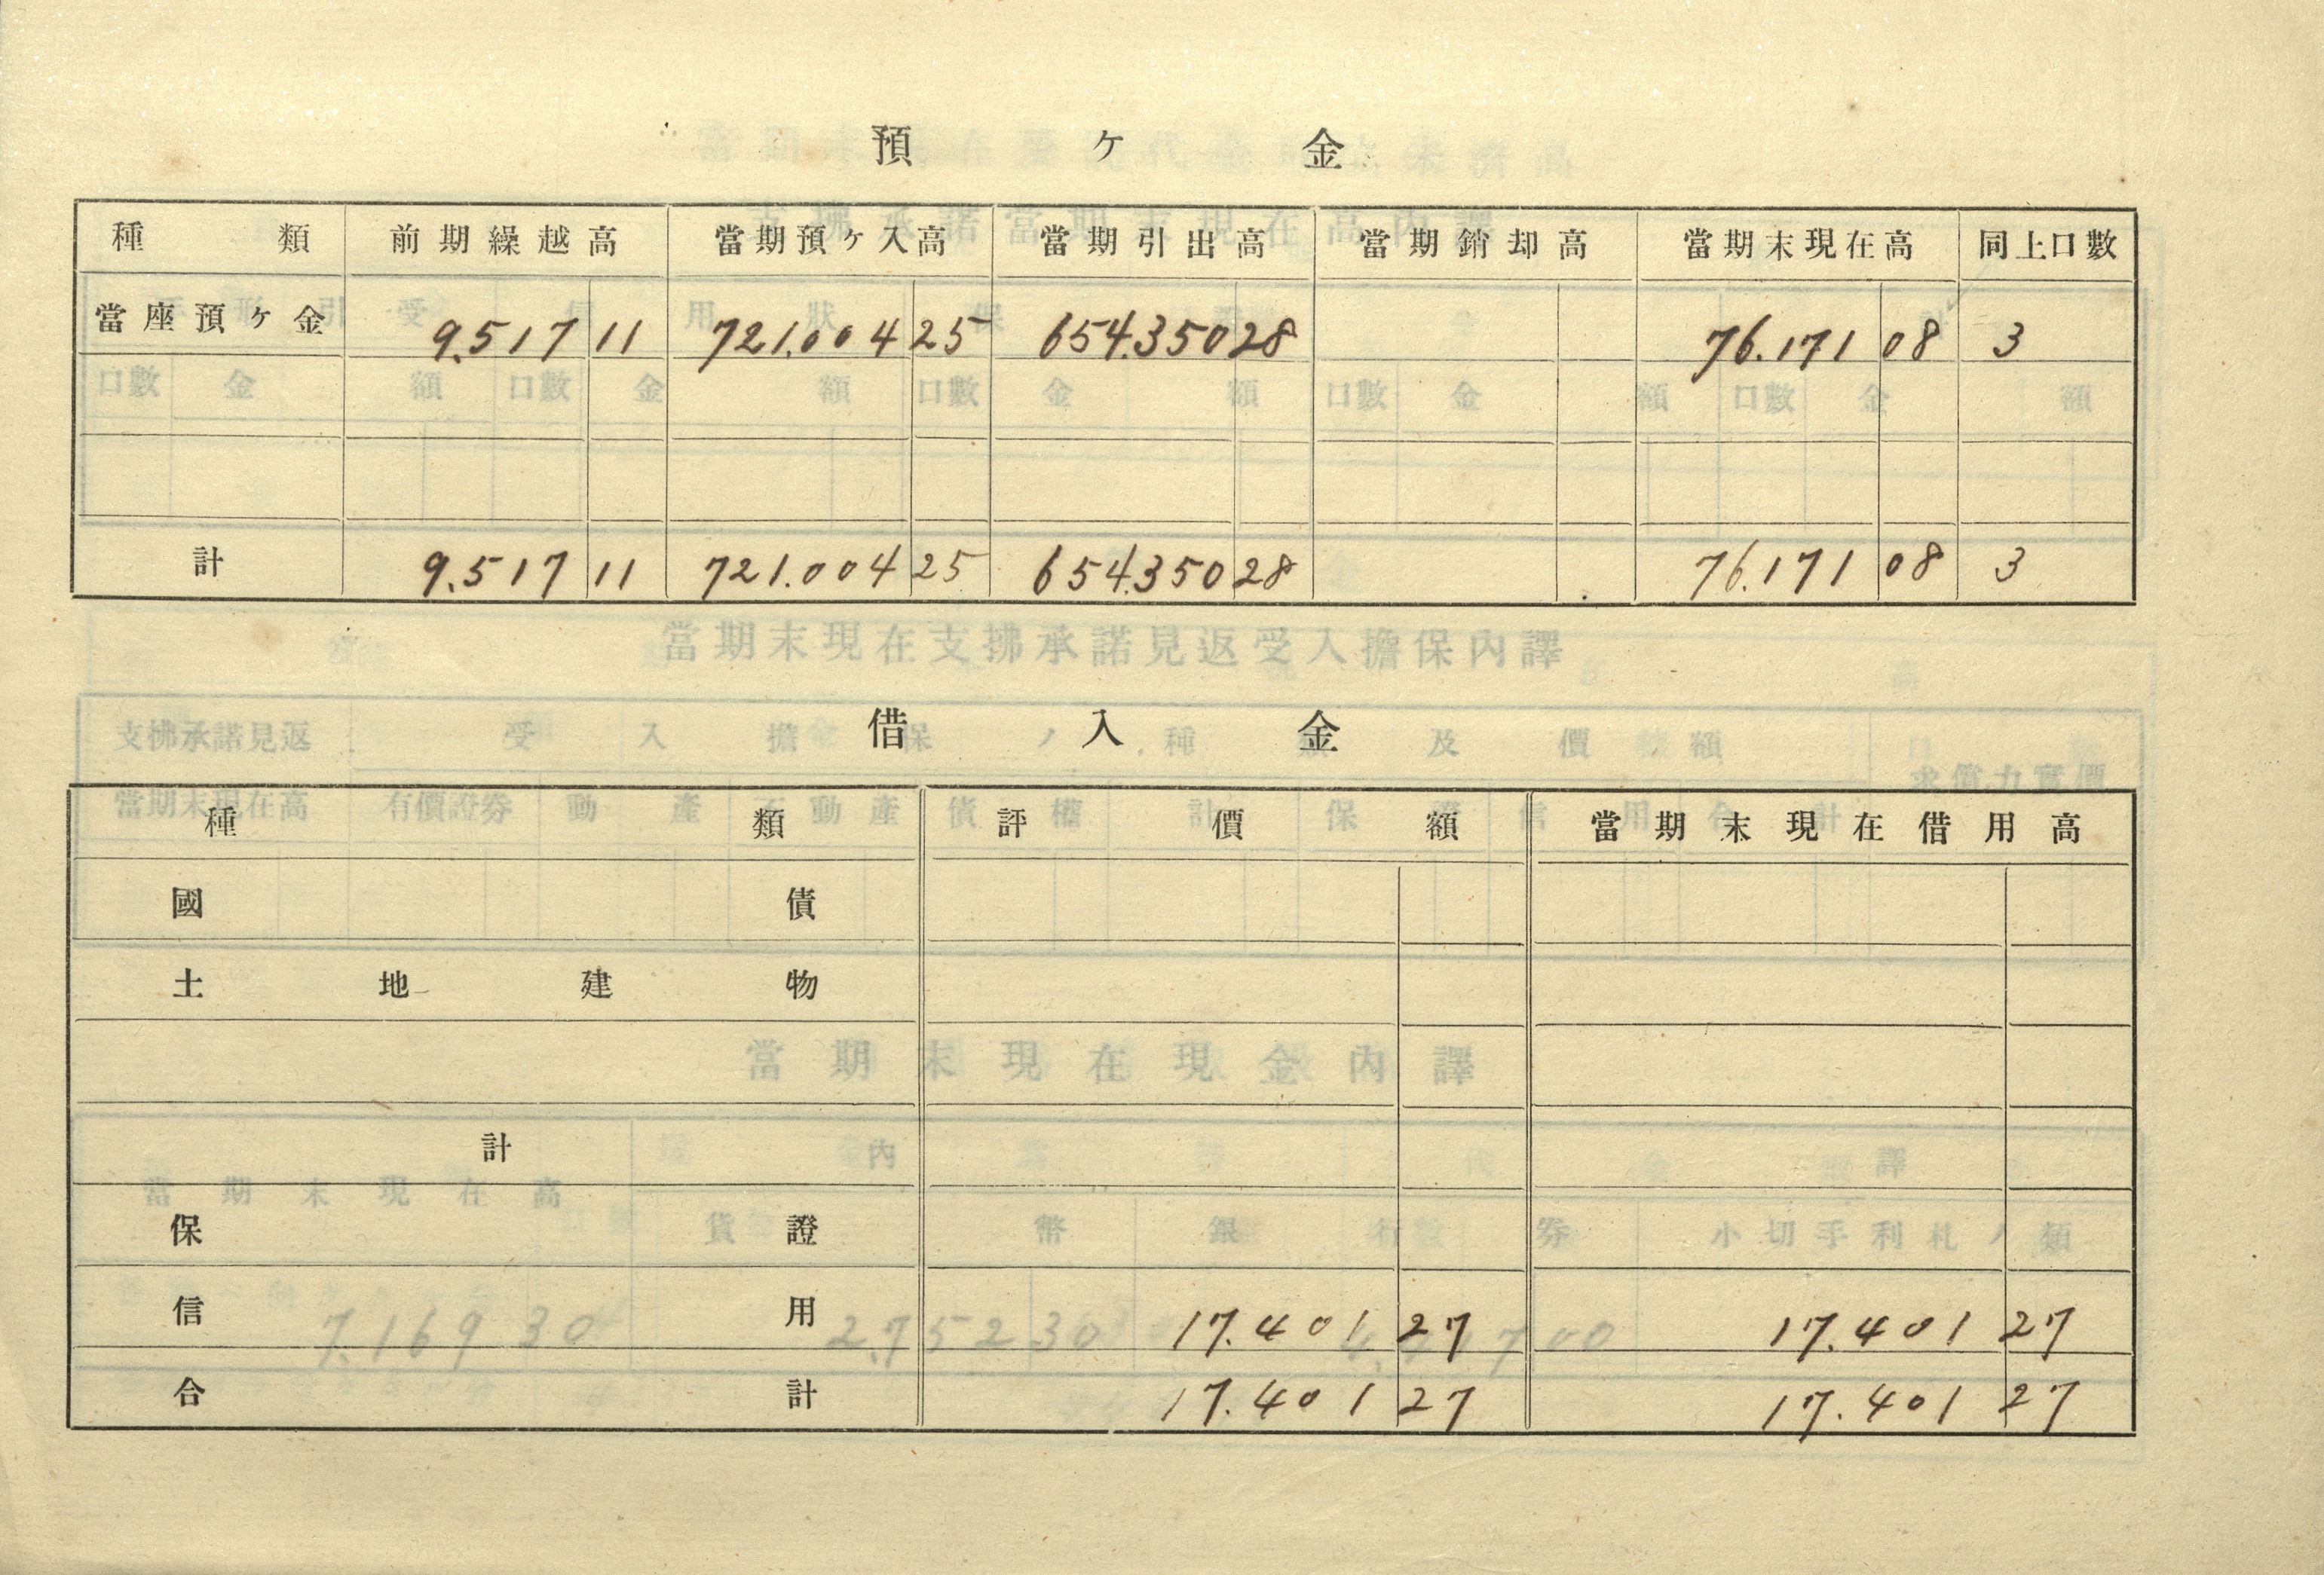 預ヶ金
種類 前期繰越高 當期預ヶ入高 當期引出高 當期銷却高 當期末現在高 同上口數
當座預ヶ金 9.517 11 721.004 25 654.350 28 76.171 08 3
計 9.517 11 721.004 25 654.350 28 76.171 08 3
借入金
種類 評價額 當期末現在借用高
國債
土地建物
計
保證
信用 17.401 27 17.401 27
合計 17.401 27 17.401 27